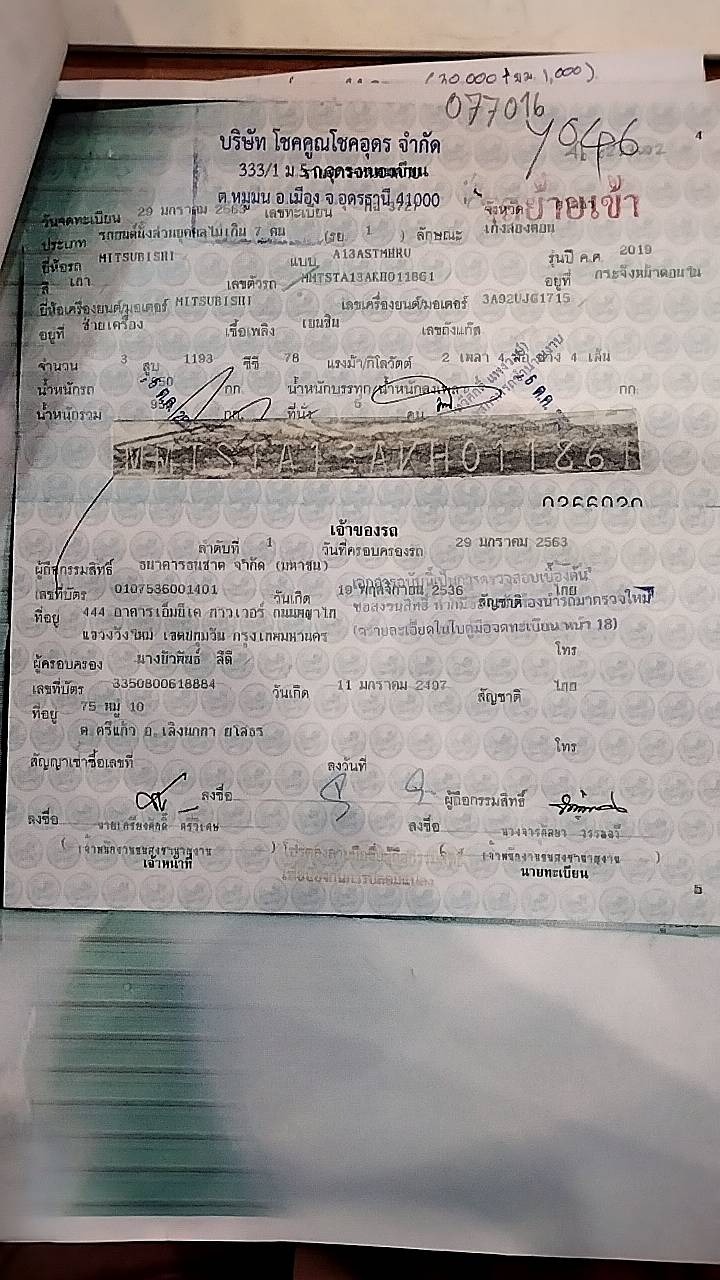 (20,000 + ยม. 1,000)
077016
4
บริษัท โชคคูณโชคอุดร จำกัด
333/1 ม.5
ต.หมูมน อ.เมือง จ.อุดรธานี 41000
ย้ายเข้า
วันจดทะเบียน 29 มกราคม 2563 เลขทะเบียน จังหวัด
ประเภท รถยนต์นั่งส่วนบุคคลไม่เกิน 7 คน (รย 1 ) ลักษณะ เก๋งสองตอน
ยี่ห้อรถ MITSUBISHI แบบ A13ASTMHRU รุ่นปี ค.ศ. 2019
สี เทา เลขตัวรถ MMTSTA13AKH011861 อยู่ที่ กระจังหน้าตอนใน
ยี่ห้อเครื่องยนต์/มอเตอร์ MITSUBISHI เลขเครื่องยนต์/มอเตอร์ 3A92UJG1715
อยู่ที่ ซ้ายเครื่อง เชื้อเพลิง เบนซิน เลขถังแก๊ส
จำนวน 3 สูบ 1193 ซีซี 78 แรงม้า/กิโลวัตต์ 2 เพลา 4 ล้อ ยาง 4 เส้น
น้ำหนักรถ กก. น้ำหนักบรรทุก/น้ำหนักลงเพลา กก.
น้ำหนักรวม กก. ที่นั่ง 5 คน
MMTSTA13AKH011861
เจ้าของรถ
ลำดับที่ 1 วันที่ครอบครองรถ 29 มกราคม 2563
ผู้ถือกรรมสิทธิ์ ธนาคารธนชาต จำกัด (มหาชน)
เอกสารฉบับนี้เป็นการตรวจสอบเบื้องต้น
เลขที่บัตร 0107536001401 วันเกิด 19 พฤศจิกายน 2536 สัญชาติ ไทย
ที่อยู่ 444 อาคารเอ็มบีเค ทาวเวอร์ ถนนพญาไท
แขวงวังใหม่ เขตปทุมวัน กรุงเทพมหานคร
(รายละเอียดในใบคู่มือจดทะเบียน หน้า 18)
โทร
ผู้ครอบครอง
เลขที่บัตร 3350800618884 วันเกิด 11 มกราคม 2497 สัญชาติ ไทย
ที่อยู่ 75 หมู่ 10
ต.ศรีแก้ว อ.เลิงนกทา ยโสธร
โทร
สัญญาเช่าซื้อเลขที่ ลงวันที่
ลงชื่อ ผู้ถือกรรมสิทธิ์
ลงชื่อ นายเกรียงศักดิ์ ศรีวิเศษ ลงชื่อ
( เจ้าพนักงานขนส่งชำนาญงาน ) ( เจ้าพนักงานขนส่งชำนาญงาน )
เจ้าหน้าที่ นายทะเบียน
5